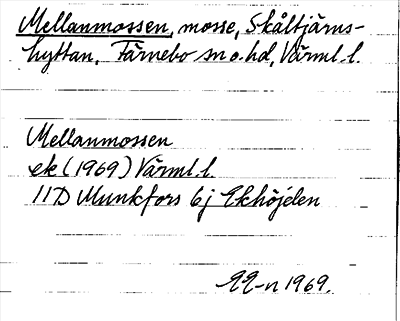 Mellanmossen, mosse, Skåltjärns-
hyttan, Färnebo sn o. hd, Värml. l.
Mellanmossen
ek (1969) Värml. l.
11D Munkfors 6j Ekhöjden
1969.